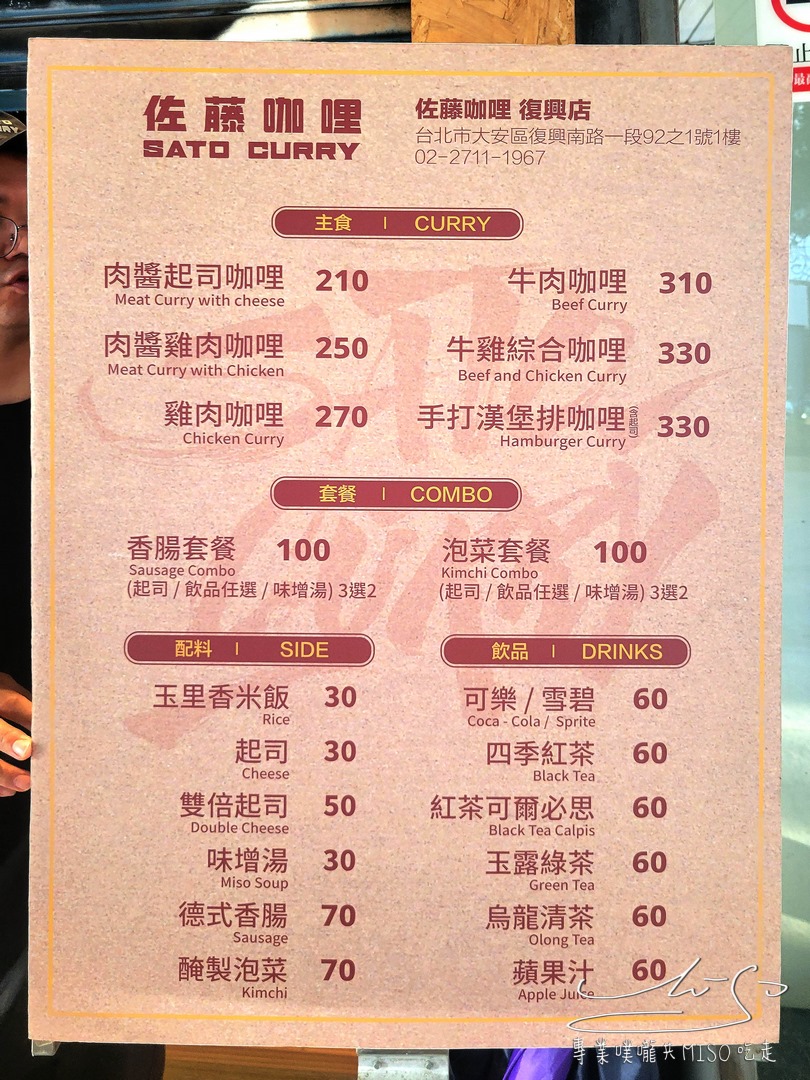 佐藤咖哩
SATO CURRY
佐藤咖哩 復興店
台北市大安區復興南路一段92之1號1樓
02-2711-1967
主食 | CURRY
肉醬起司咖哩 210
Meat Curry with cheese
肉醬雞肉咖哩 250
Meat Curry with Chicken
雞肉咖哩 270
Chicken Curry
牛肉咖哩 310
Beef Curry
牛雞綜合咖哩 330
Beef and Chicken Curry
手打漢堡排咖哩(含起司) 330
Hamburger Curry
套餐 | COMBO
香腸套餐 100
Sausage Combo
(起司 / 飲品任選 / 味增湯) 3選2
泡菜套餐 100
Kimchi Combo
(起司 / 飲品任選 / 味增湯) 3選2
配料 | SIDE
玉里香米飯 30
Rice
起司 30
Cheese
雙倍起司 50
Double Cheese
味增湯 30
Miso Soup
德式香腸 70
Sausage
醃製泡菜 70
Kimchi
飲品 | DRINKS
可樂 / 雪碧 60
Coca - Cola / Sprite
四季紅茶 60
Black Tea
紅茶可爾必思 60
Black Tea Calpis
玉露綠茶 60
Green Tea
烏龍清茶 60
Olong Tea
蘋果汁 60
Apple Juice
專業噗嚨共MISO吃走